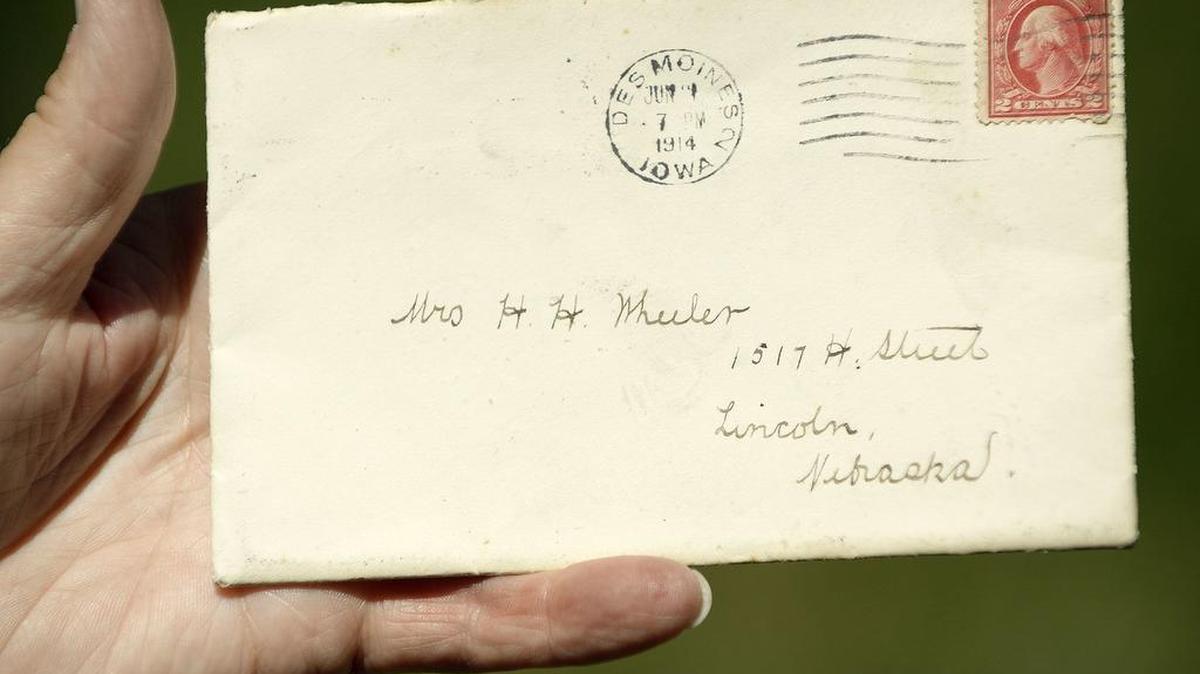 DES MOINES
JUN
7 PM
1914
IOWA
2 CENTS 2
Mrs H. H. Wheeler
1517 H. Street
Lincoln,
Nebraska.